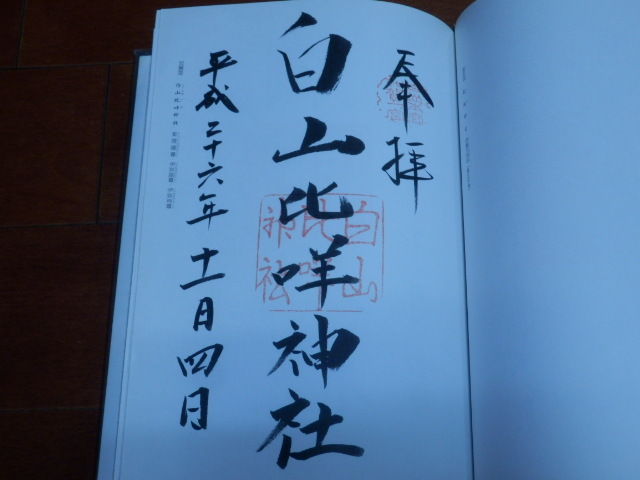 奉拝
白山比咩神社
平成二十六年十一月四日
白山
比咩
神社